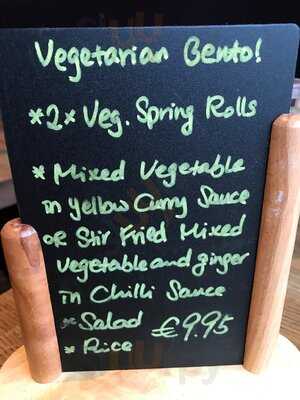 Vegetarian Bento!
*2x Veg. Spring Rolls
* Mixed Vegetable
in yellow Curry Sauce
OR Stir Fried Mixed
vegetable and ginger
in Chilli Sauce
* Salad €9.95
* Rice